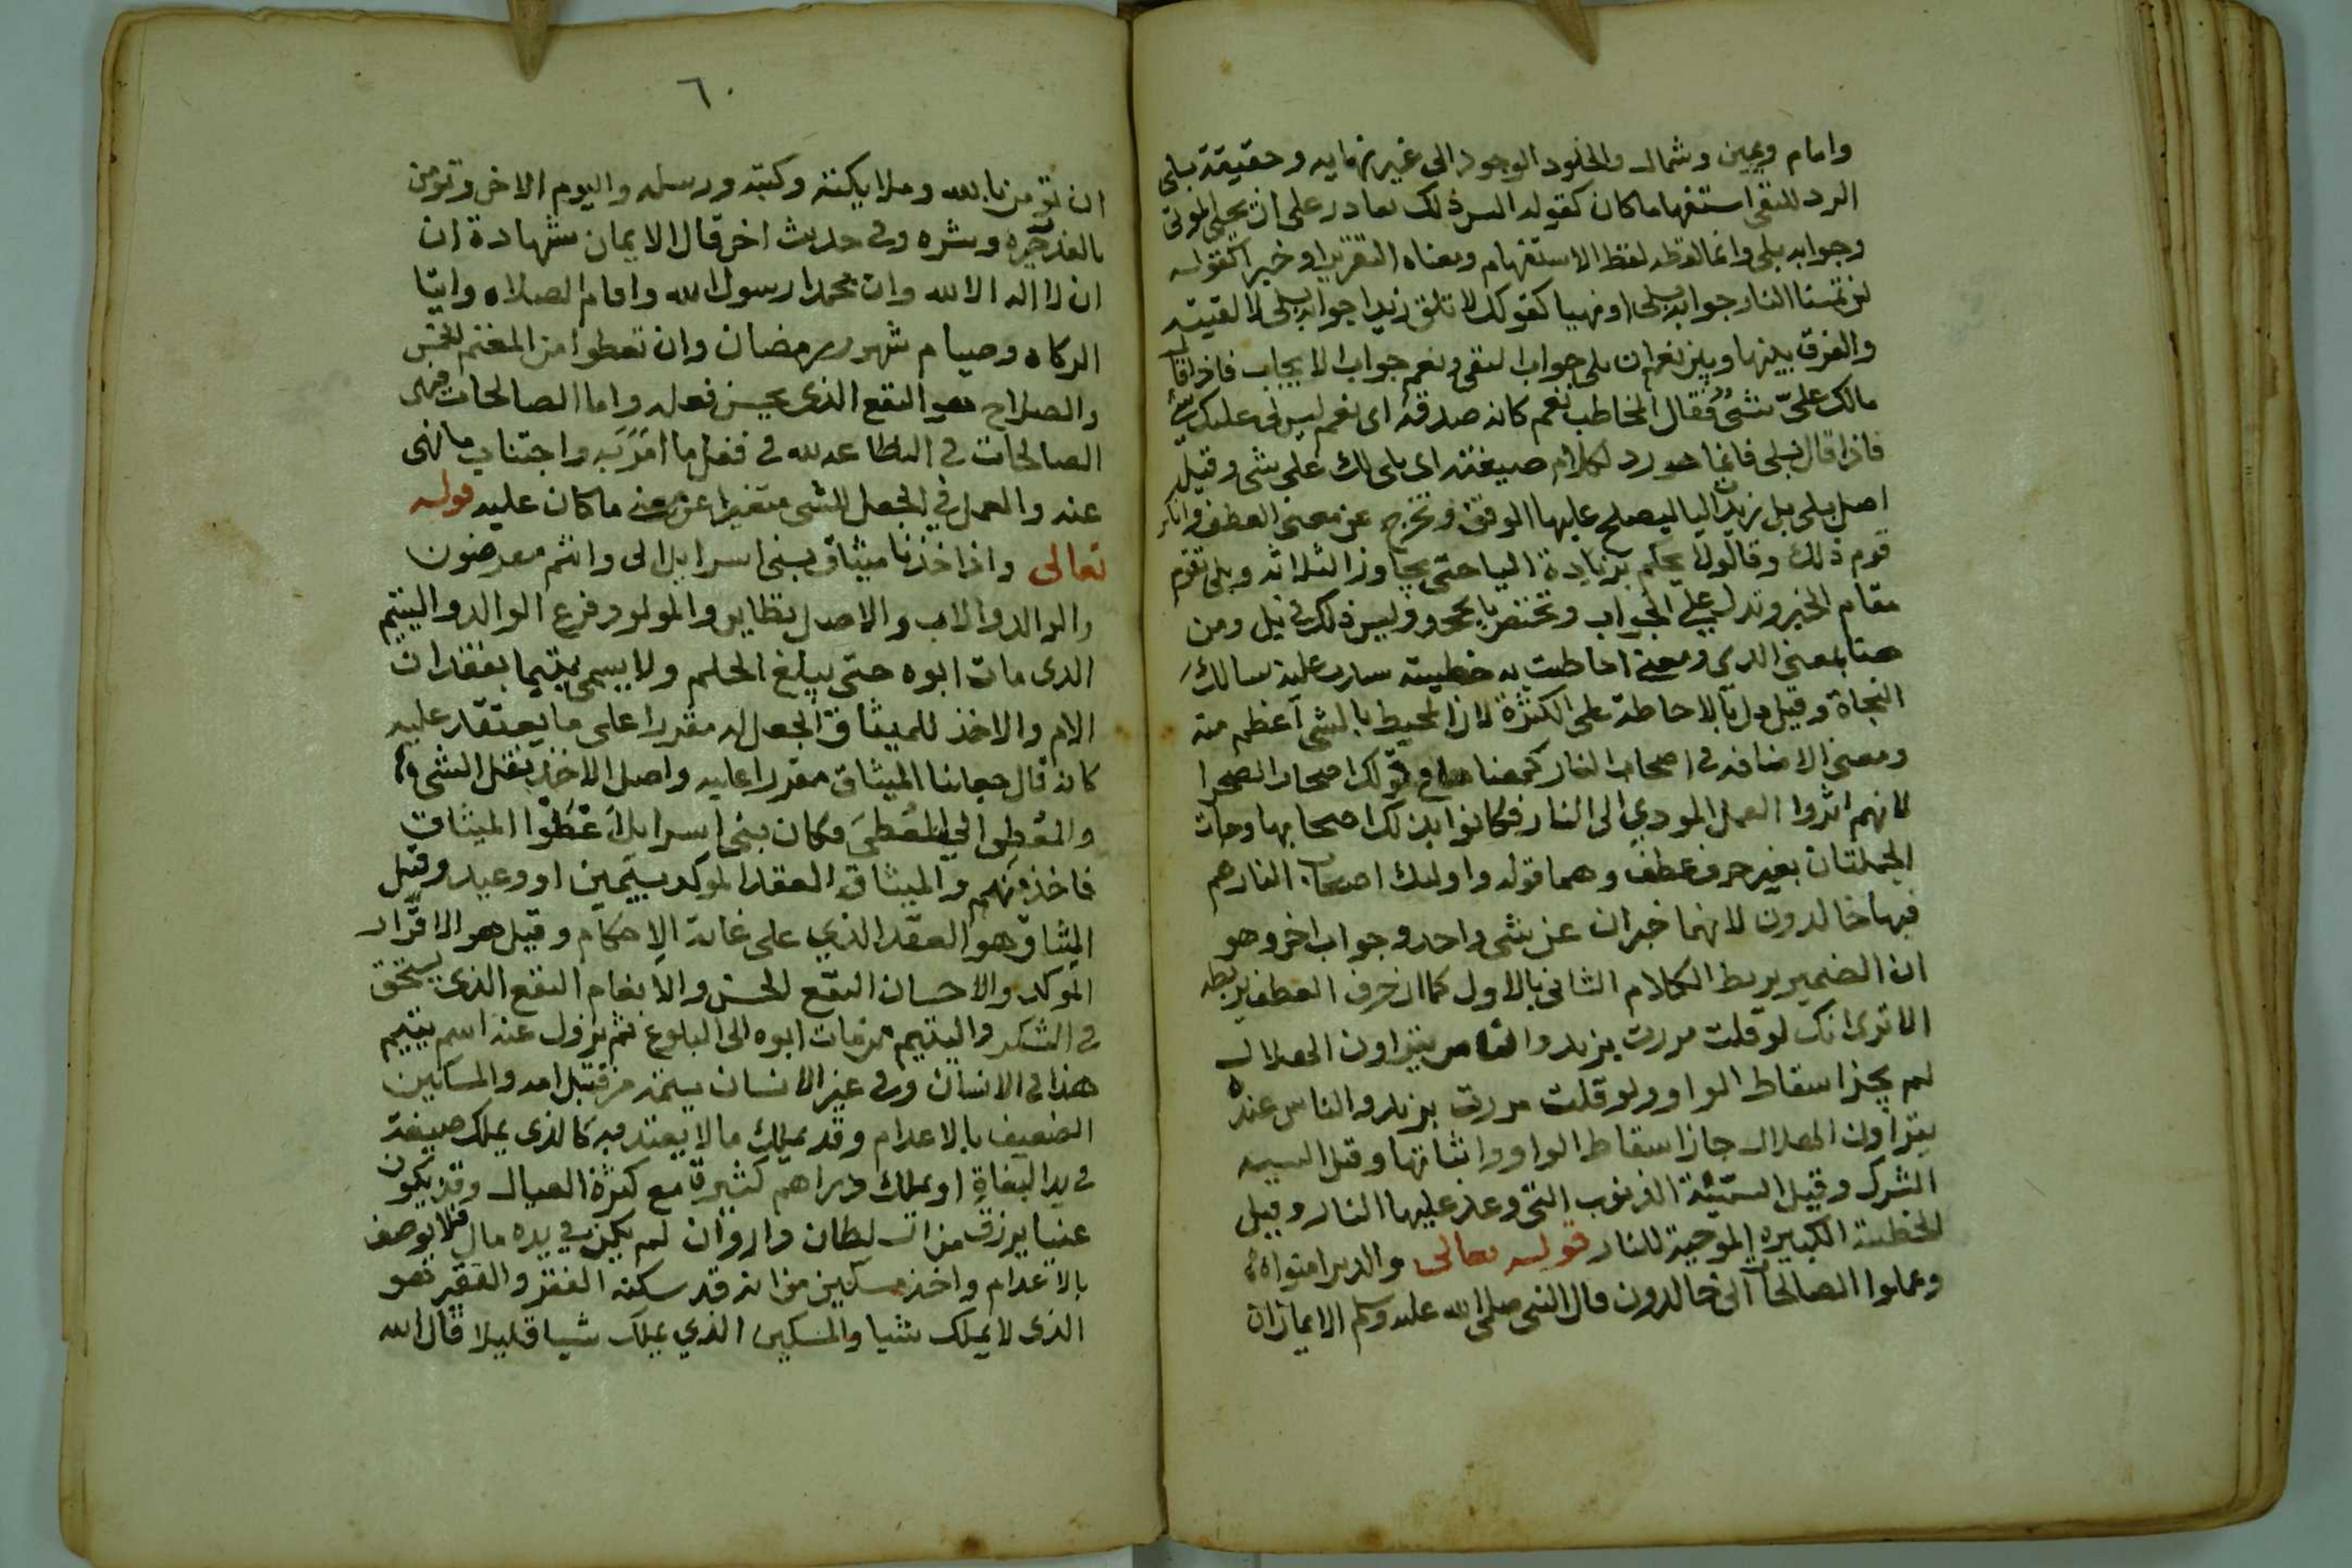 وامام ويمين وشمال والخلود الوجود الى غير نهايه وحقيقة بلى
الرد للنفى استفهاما كان كقوله اليس ذلك بقادر على ان يحيى الموتى
وجوابه بلى وانما لفظه لفظ الاستفهام ومعناه التقرير او خبرا كقوله
لن تمسنا النار جوابه بلى او نهيا كقولك لا تلق زيدا جوابه بلى لا لقينه
والفرق بينها وبين نعم ان بلى جواب النفى ونعم جواب الايجاب فاذا قال
مالك علىّ شىٌ فقال المخاطب نعم كانه صدقه اى نعم ليس لى عليك شى
فاذا قال بلى فانما هو رد لكلام صيغته اى بلى لك على شى وقيل
اصل بلى بل زيدت اليا ليصلح عليها الوقف وتخرج عن معنى العطف وانكر
قوم ذلك وقالوا لا يحكم بزيادة اليا حتى يجاوز الثلاثه وبلى تقوم
مقام الخبر وتدل على الجواب وتختص بالجحود وليس ذلك فى بل ومن
هنا بمعنى الذى ومعنى احاطت به خطيته سارت عليه سالك
النجاة وقيل دل بالاحاطة على الكثرة لان المحيط بالشى اعظم منه
ومعنى الاضافه فى اصحاب النار كمعناها فى قولك اصحاب الصحرا
لانهم اثروا العمل المودى الى النار فكانوا بذلك اصحابها وجات
الجملتان بغير حرف عطف وهما قوله واوليك اصحاب النار هم
فيها خالدون لانهما خبران عن شى واحد وجواب اخر وهو
ان الضمير يربط الكلام الثانى بالاول كما ان حرف العطف يربطه
الا ترى انك لو قلت مررت بزيد والناس يتراون الهلال
لم يجز اسقاط الواو ولو قلت مررت بزيد والناس عنده
يتراون الهلال جاز اسقاط الواو واثباتها وقيل السييه
الشرك وقيل السيّئة الذنوب التى وعد عليها النار وقيل
الخطيئة الكبيره الموجبة للنار قوله تعالى والذين امنوا
وعملوا الصالحات الى خالدون قال النبى صلى الله عليه وسلم الايمان ان
٦٠
ان تومن بالله وملايكته وكتبه ورسله واليوم الاخر وتومن
بالقدر خيره وشره وفى حديث اخر قال الايمان شهادة ان
ان لا اله الا الله وان محمدا رسول الله واقام الصلاه وايتا
الزكاه وصيام شهر رمضان وان تعطوا من المغنم الخمس
والصلاح هو النفع الذى يحسن فعله واما الصالحات فهى
الصالحات فى الطاعه لله فى فعل ما امَر به واجتناب ما نهى
عنه والعمل فى الجعل للشى متغيرا عن ما كان عليه قوله
تعالى واذ اخذنا ميثاق بنى اسرايل الى وانتم معرضون
والوالد والاب والاصل نظاير والمولود فرع الوالد واليتيم
الذى مات ابوه حتى يبلغ الحلم ولا يسمى يتيما بفقدان
الام والاخذ للميثاق الجعل له مقررا على ما يعتقد عليه
كانه قال جعلنا الميثاق مقررا عليه واصل الاخذ نقل الشى
والمعطِى الى المُعطَى فكان بنى اسرايل اَعْطَوْا الميثاق
فاخذ منهم والميثاق العقد الموكد بيمين او وعيد وقيل
الميثاق هو العقد الذى على غاية الاحكام وقيل هو الاقرار
الموكد والاحسان النفع الحسن والانعام النفع الذى يستحق
فى الشكر واليتيم من مات ابوه الى البلوغ ثم يزول عنه اسم يتيم
هذا فى الانسان وفى غير الانسان يتمه من قبل امه والمساكين
الضعيف بالاعدام وقد يملك ما لا يعتد به كالذى يملك صيغة
فى يد البغاة او يملك دراهم كثيرة مع كثرة العيال وقد يكون
غنيا يرزق من السلطان وان لم يكن فى يده مال فلا يوصف
بالاعدام واخذ مسكين من انه قد سكنه الفقر والفقير هو
الذى لا يملك شيا والمسكين الذى يملك شيا قليلا قال الله